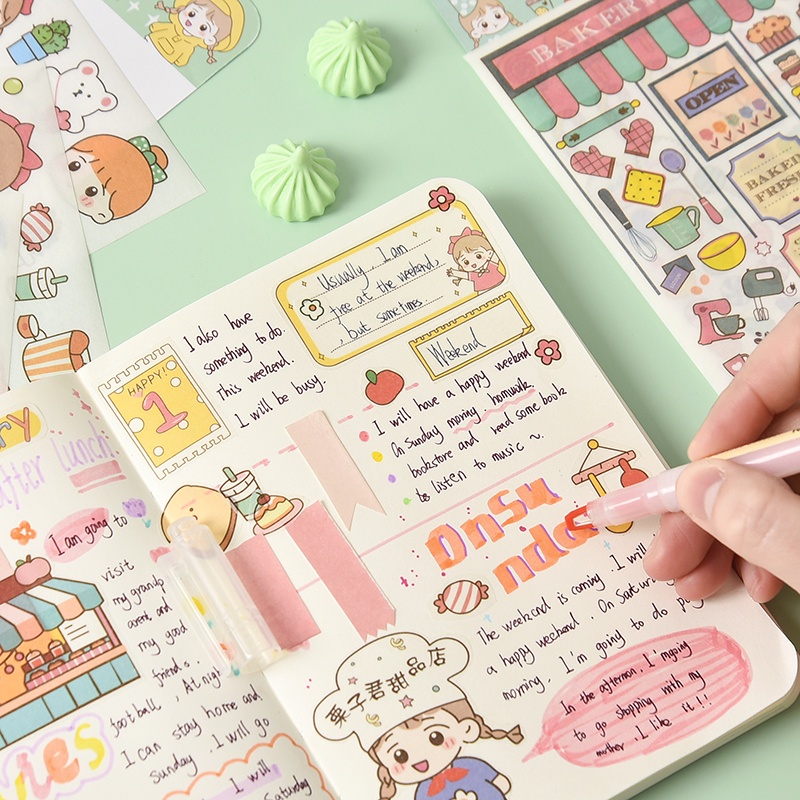 BAKERY
OPEN
BAKED
FRESH
Usually, I am
free at the weekend,
, but sometimes.
Weekend
I also have
something to do.
This weekend.
I will be busy.
HAPPY!
1
I will have a happy weekend
On Sunday moving. homework.
bookstore and read some book
to listen to music ~.
Onsu
nda
The weekend is coming. I will
a happy weekend. On Saturday
morning. I'm going to do
In the afternoon. I'mgoing
to go shopping with my
mother. I like it!!
栗子君甜品店
RY
after Lunch
I am going to
visit
my grandp
arent and
my good
friends.
. At nigh
football,
I can stay home and
Sunday. I will go
ies
I will
Saturday